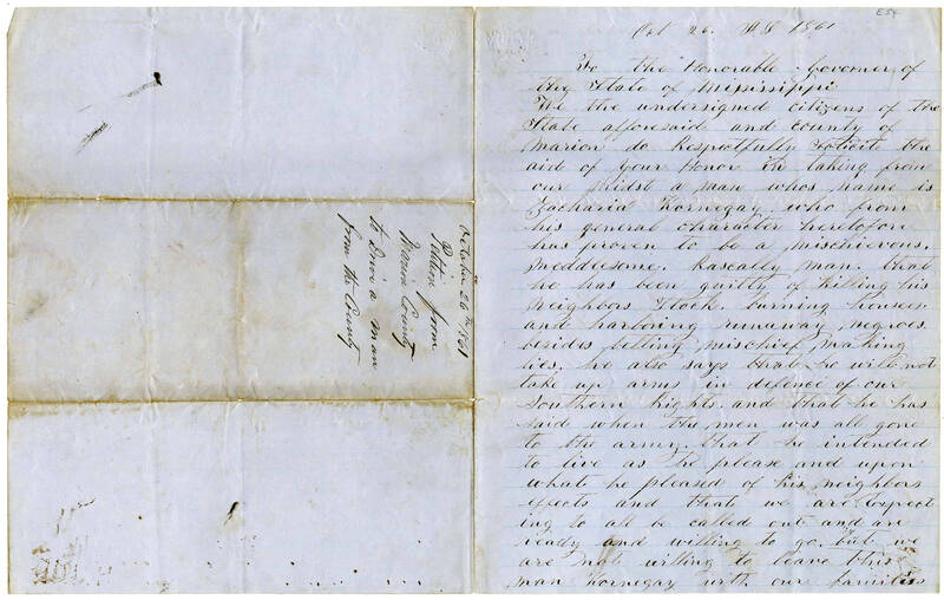 October 26th 1861
Petition from
Marion County
to Drive a man
from the County
Oct 26. AD 1861
To the Honorable Governer of
the State of Mississippi
We the undersigned citizens of the
State afforesaid and county of
Marion do Respetfully Solicit the
aid of your Honor in taking from
our midst a man whos name is
Zacharia Kornegay who from
his general character heretofore
has proven to be a mischievous.
meddlesome. Rascally man. that
he has been guilty of killing his
neighbors Stock. burning houses
and harboring runaway negroes.
besides betting mischief making
lies. he also says that he will not
take up arms in defence of our
Southern Rights. and that he has
said when the men was all gone
to the army that he intended
to live as he please and upon
what he pleased of his neighbors
effects and that we are expect
ing to all be called out and are
ready and willing to go. but we
are not willing to leave this
man Kornegay with our families